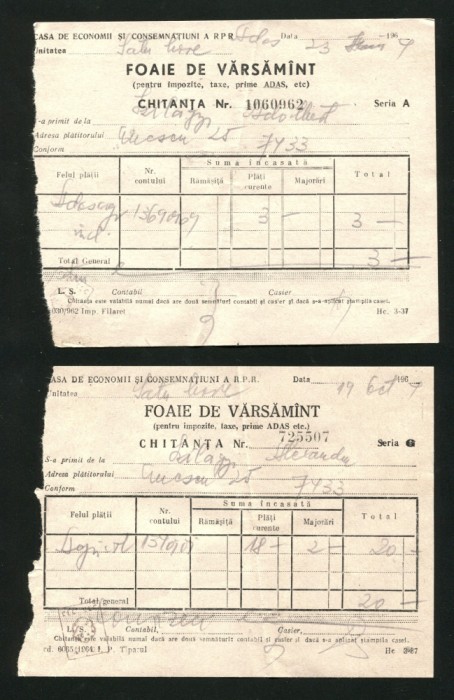 CASA DE ECONOMII ȘI CONSEMNAȚIUNI A R.P.R. Data 23 196
Unitatea Satu Mare
FOAIE DE VĂRSĂMÎNT
(pentru impozite, taxe, prime ADAS, etc)
CHITANȚA Nr. 1060962 Seria A
S-a primit de la
Adresa plătitorului 25
Conform 7433
Felul plății
Nr. contului
Suma încasată
Total
Rămășiță
Plăți curente
Majorări
3 — 3 —
Total General 3 —
L. S. Contabil Casier
Chitanța este valabilă numai dacă are două semnături contabil și casier și dacă s-a aplicat ștampila casei.
030/962 Imp. Filaret Hc. 3-37
CASA DE ECONOMII ȘI CONSEMNAȚIUNI A R.P.R. Data 19 Oct 196
Unitatea Satu Mare
FOAIE DE VĂRSĂMÎNT
(pentru impozite, taxe, prime ADAS etc.)
CHITANȚA Nr. 725507 Seria G
S-a primit de la Alexandru
Adresa plătitorului 25
Conform 7433
Felul plății
Nr. contului
Suma încasată
Total
Rămășiță
Plăți curente
Majorări
18 — 2 — 20 —
Total general 20 —
L. S. Contabil, Casier,
Chitanța este valabilă numai dacă are două semnături contabil și casier și dacă s-a aplicat ștampila casei.
I. P. Tiparul Hc 3-37